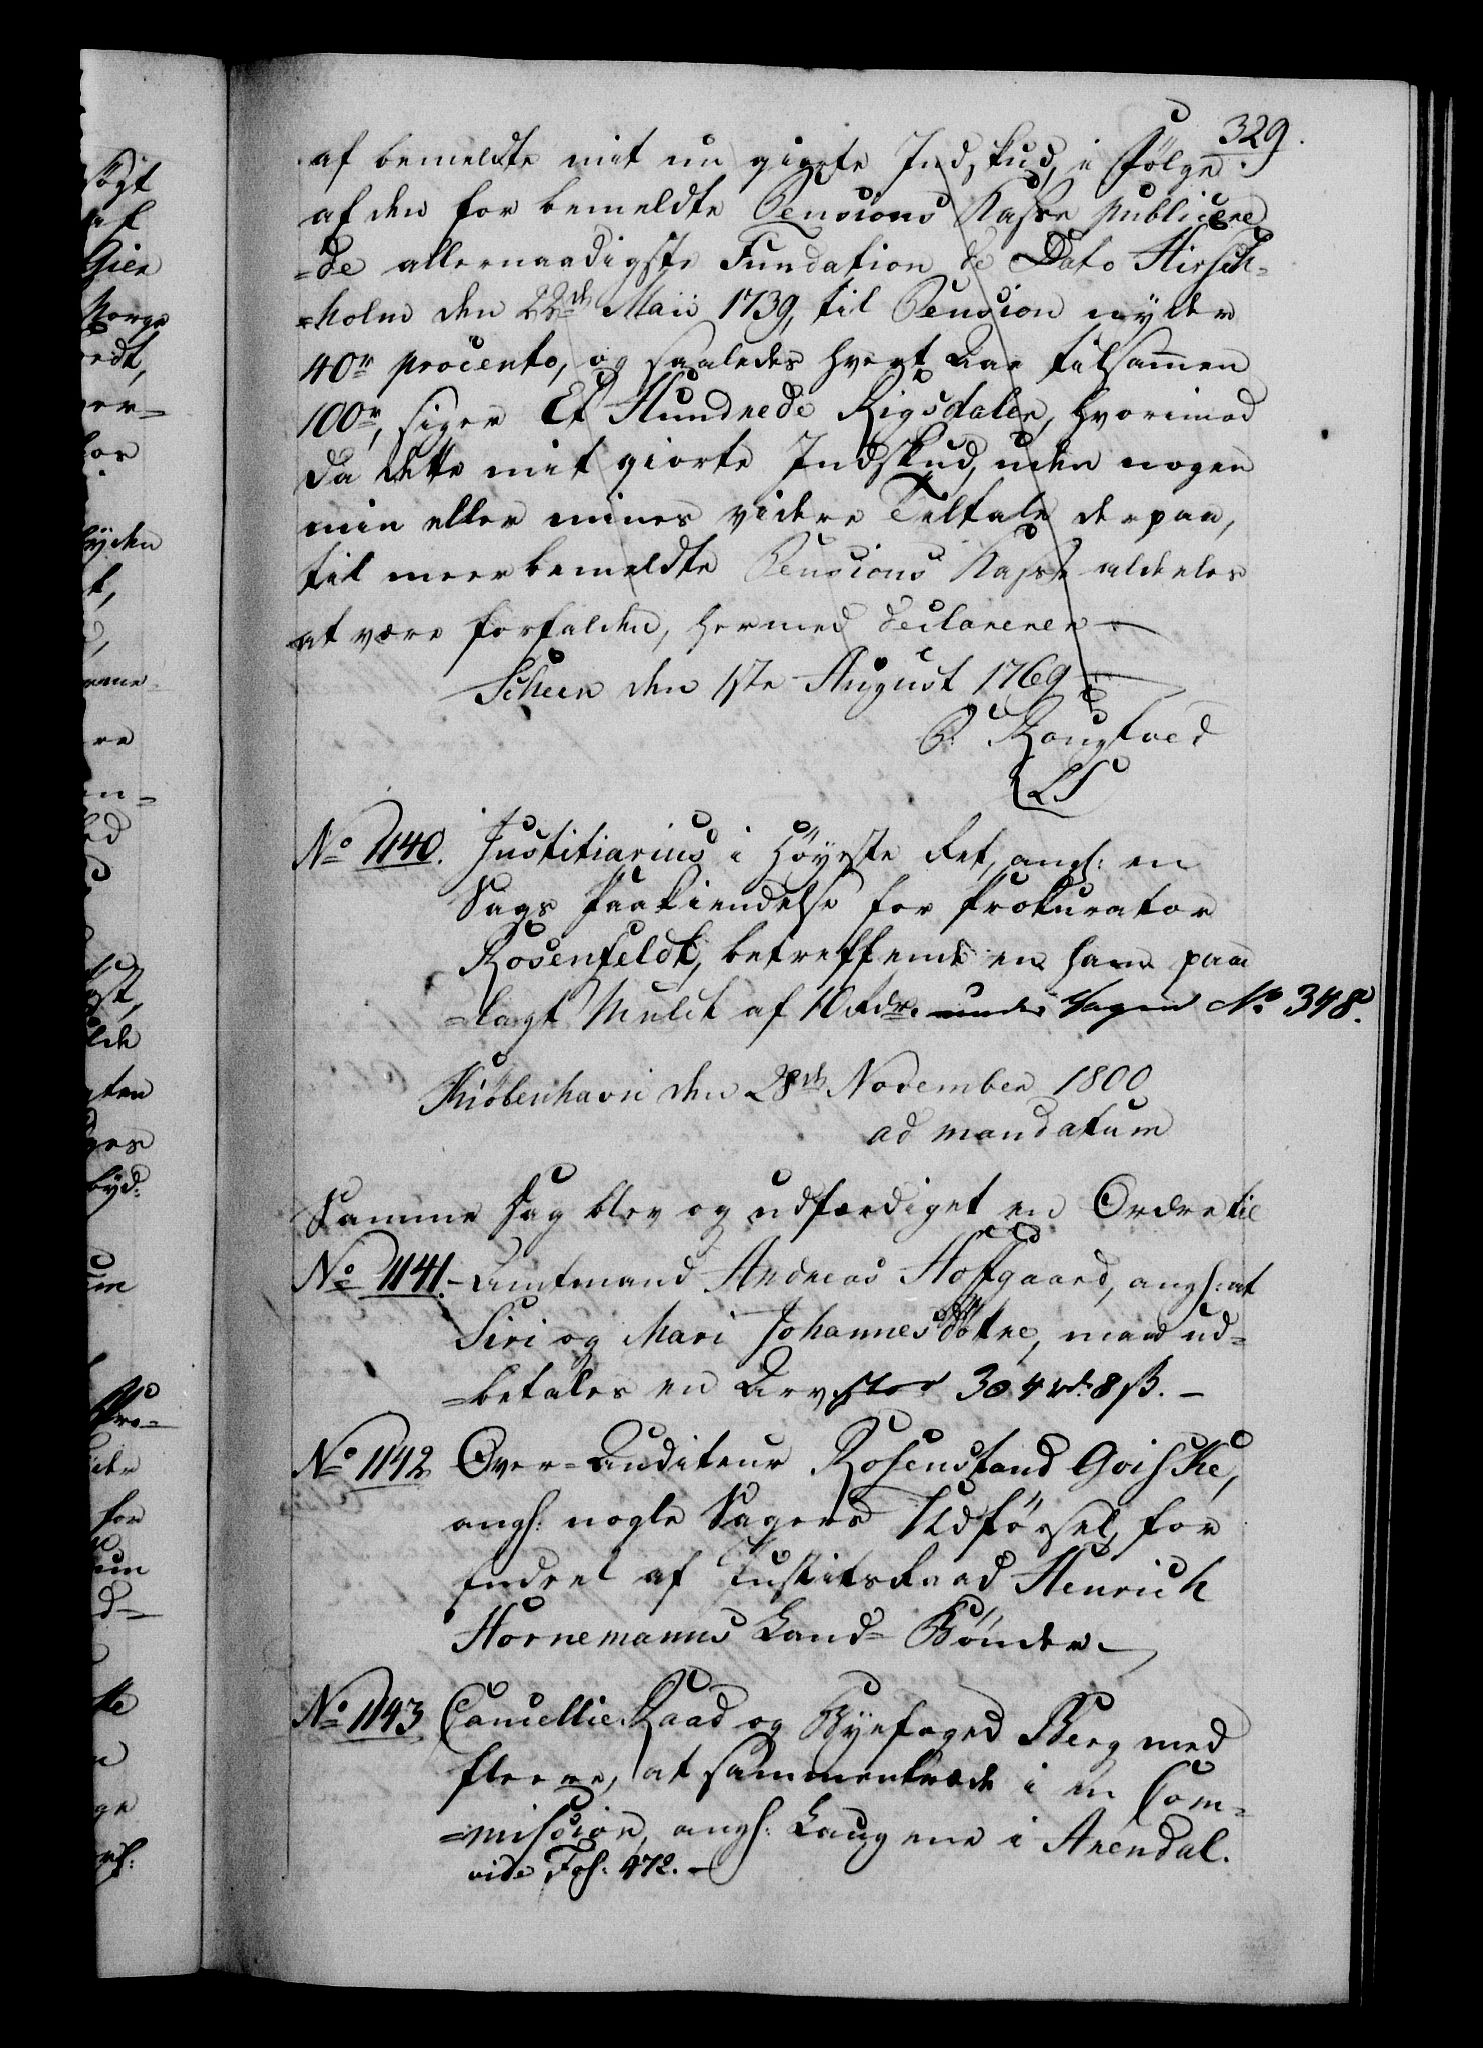 329.
af bemeldte mit nu giorte Indskud, i Følge
af den for bemeldte Pensions Kasse publicere
=de allernaadigste Fundation de Dato Hirsch=
=holm den 22de Maii 1739, til Pension nyder
40r procento, og saaledes hvert Aar tilsammen
100r, siger Et Hundrede Rigsdaler, hvorimod
da dette mit giorte Indskud, uden nogen
min eller mines videre Tiltale derpaa,
til meerbemeldte Pensions Kasse aldeeles
at være forfalden, hermed declarerer.
Scheen den 1ste August 1769
P. Rougtved
LS
No 1140. Justitiarius i Höyeste Ret, angh: en
Sags Paakiendelse for Prokurator
Rosenfeldt, betreffende en ham paa
=lagt Mulct af 10 Rdr. under Sagen No. 348.
Kiöbenhavn den 28de November 1800
ad mandatum
Samme Dag blev og udfærdiget en Ordre til
No 1141. Amtmand Andreas Hofgaard, angh: at
Siri og Mari Johannesdötre, maae ud=
=betales en Arv stor 304 rd. 8 ß.
No 1142 Over-Auditeur Rosenstand Goiske,
angh: nogle Sagers Udförsel, for
endeel af Justitsraad Henrich
Hornemanns Land-Bönder.
No 1143 Cancellie-Raad og Byefoged Berg med
fleere, at sammentræde i en Com=
=mission, angh: Laugene i Arendal.
vide Fol: 472.